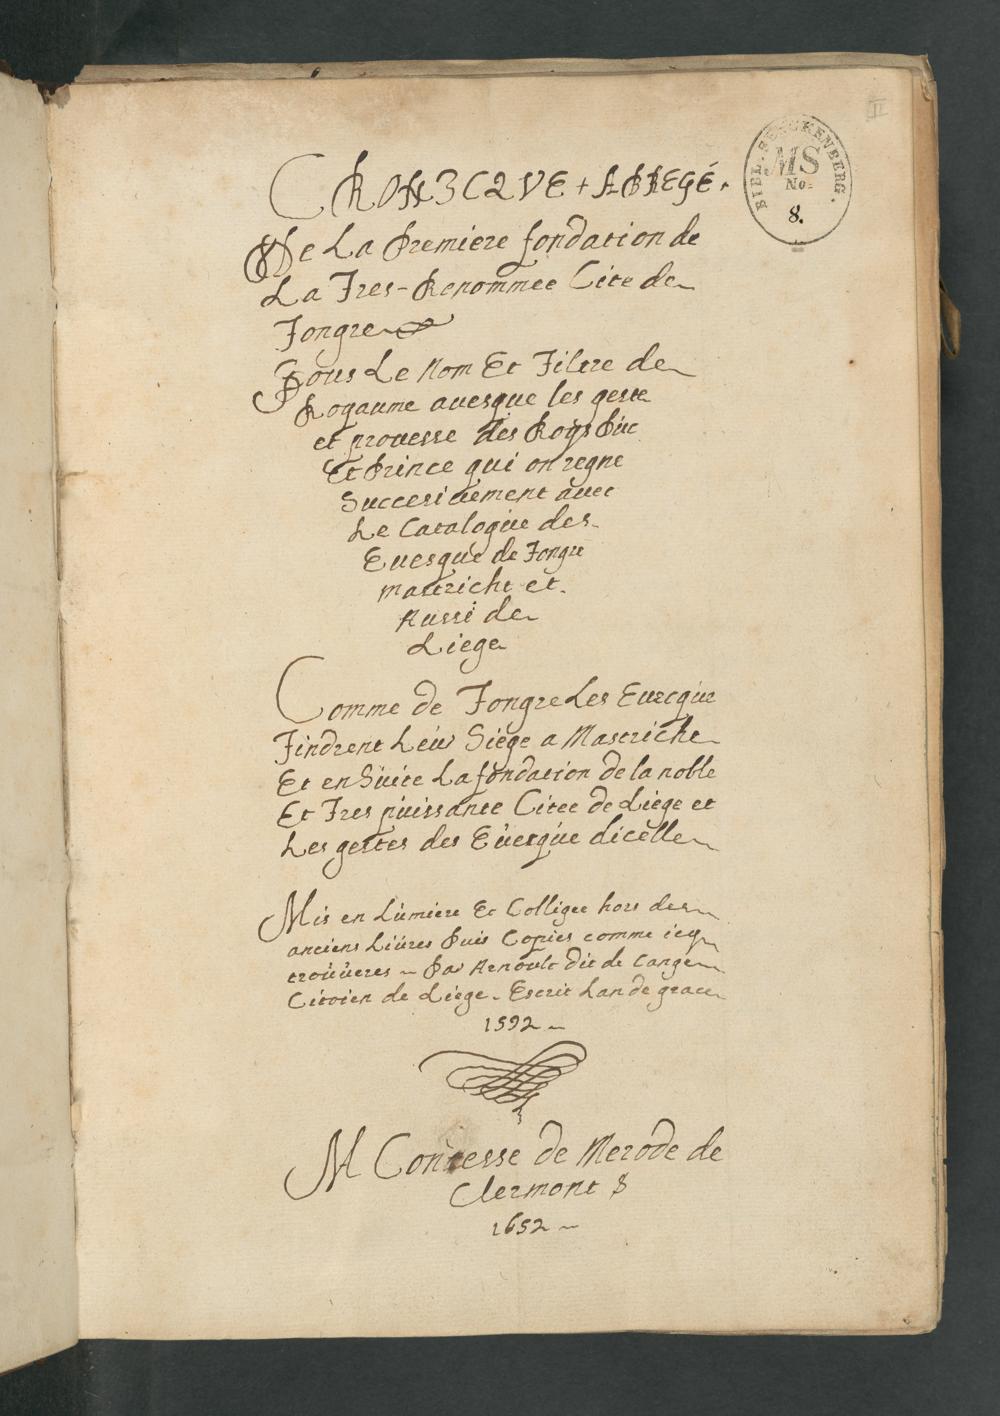 II
BIBL. REECKENBERG.
MS
No.
8.
CRONICQVE + ABREGÉ.
De La Premiere fondation de
La Tres-Renommee Cite de
Tongre
Sous Le Nom Et Tiltre de
Royaume avesque les geste
et prouesse des Roys Duc
Et Prince qui on regne
Succesivement avec
Le Catalogue des
Evesque de Tongre
mastricht et.
Aussi de
Liege
Comme de Tongre Les Evecque
Tindrent Leur Siege a Mastricht
Et en Suite La fondation de la noble
Et Tres puissante Citee de Liege et
Les gestes des Evesque dicelle
Mis en Lumiere Et Colligee hors des
anciens Livres Puis Copies comme icy
trouveres Par Arnoult dit de Cange
Citoien de Liege. Escrit Lan de grace
1592
M Contesse de Merode de
Clermont S
1652